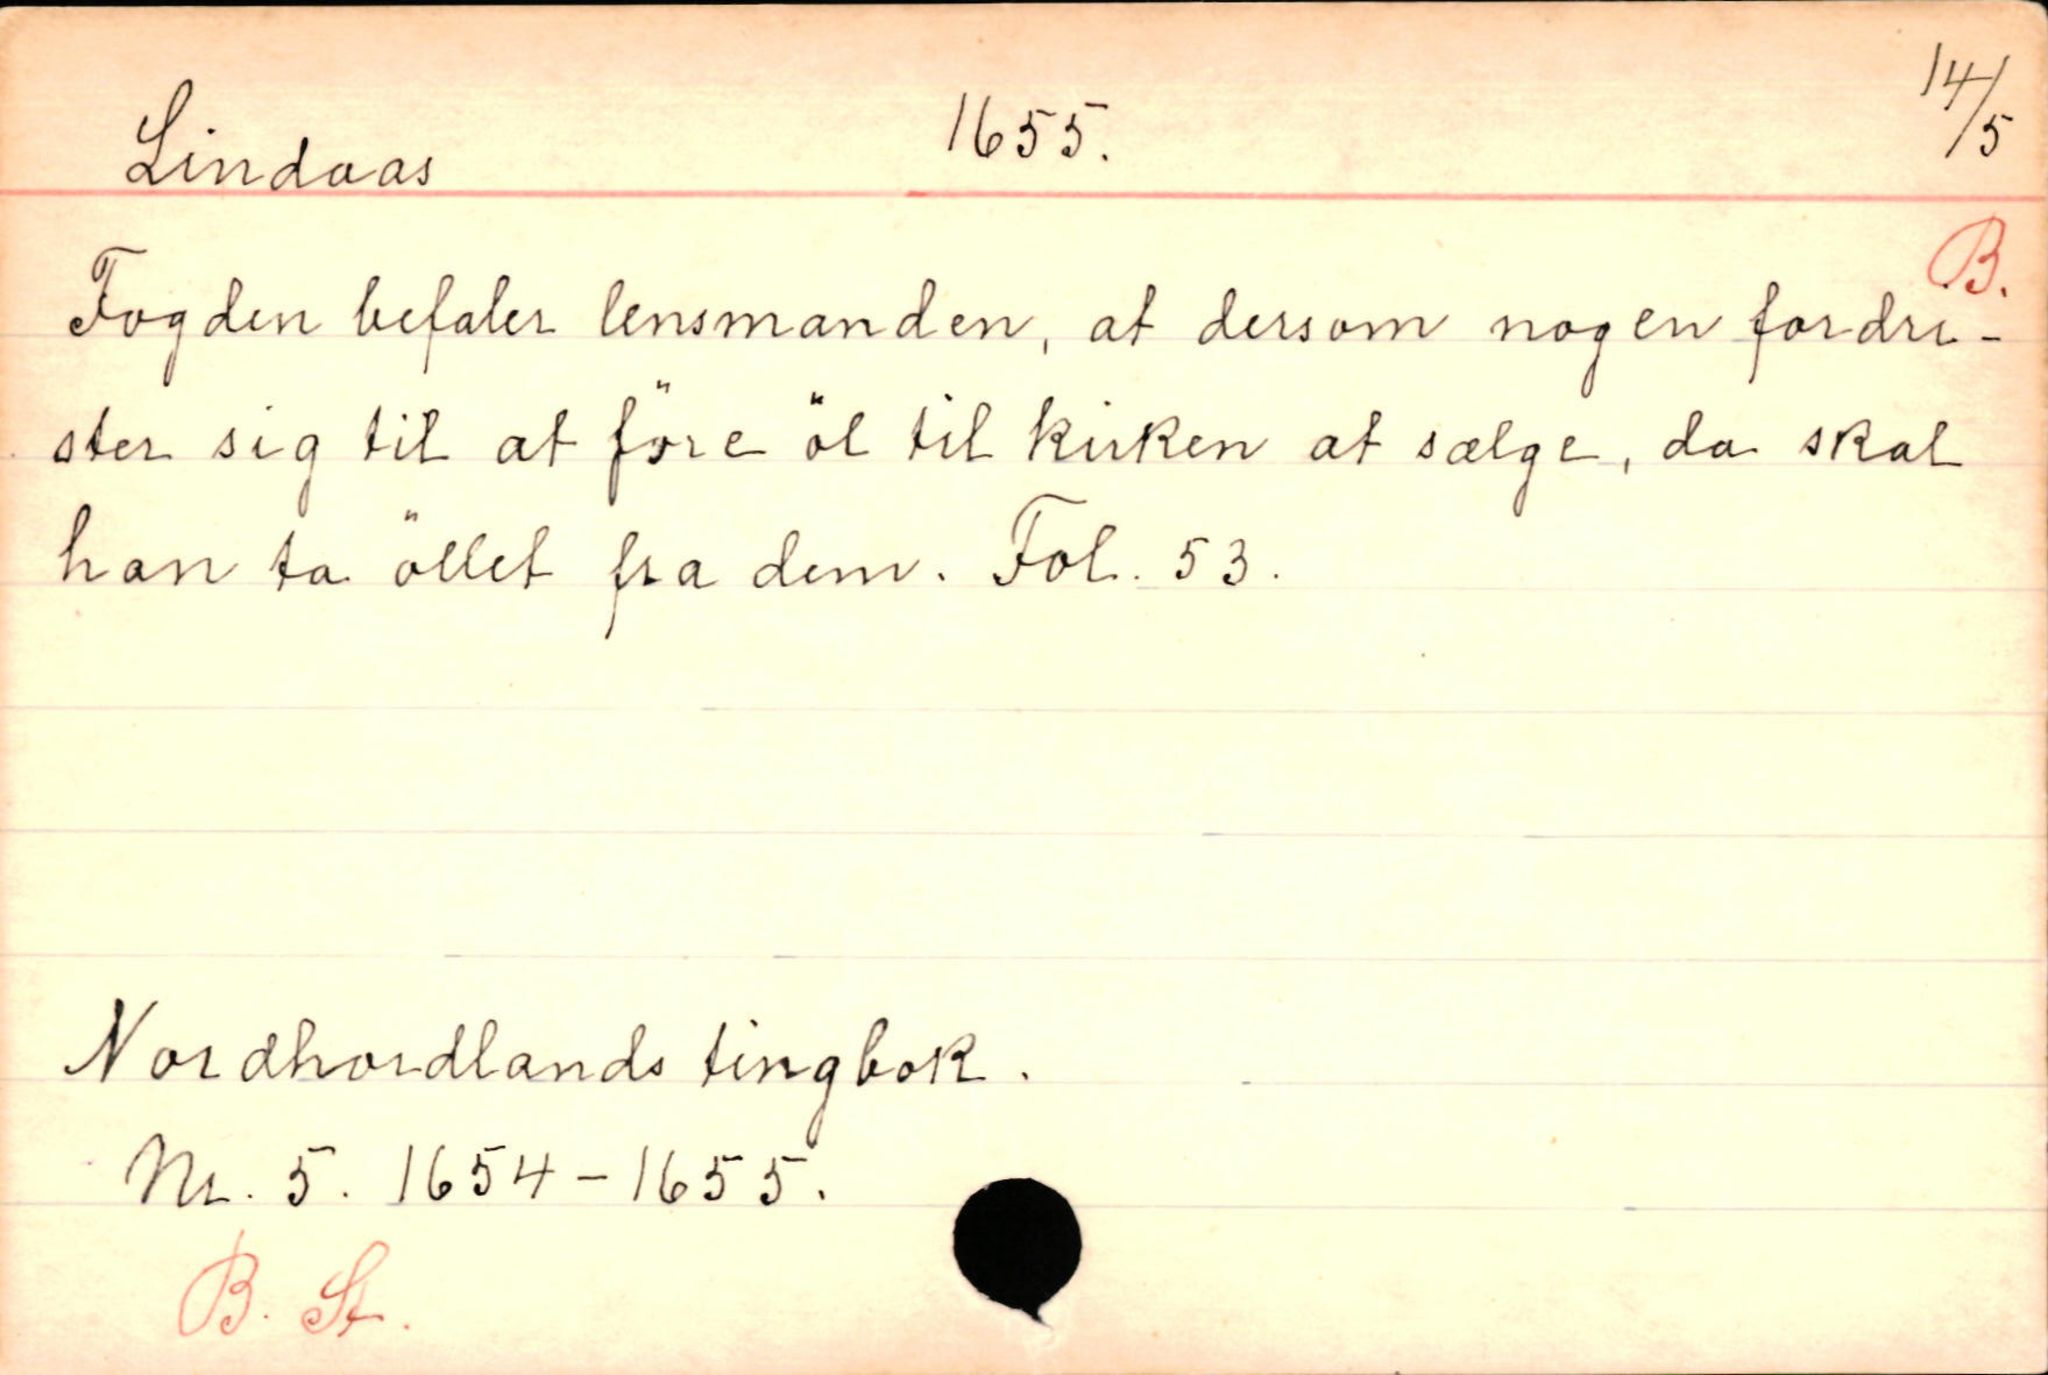 Lindaas 1655. 14/5
B.
Fogden befaler lensmanden, at dersom nogen fordri-
ster sig til at före öl til kirken at sælge, da skal
han ta öllet fra dem. Fol. 53.
Nordhordlands tingbok.
Nr. 5. 1654-1655.
B. St.